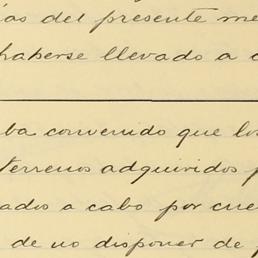 ías del presente me
haberse llevado a c
ba convenido que los
terrenos adquiridos p
ados a cabo por cue
de no disponer de f